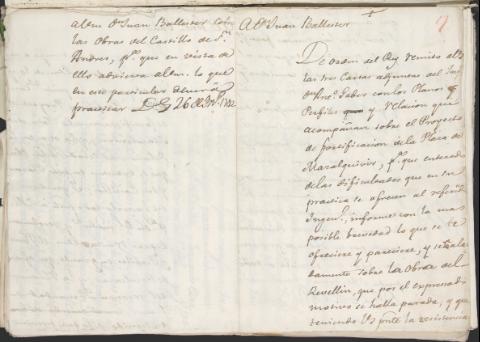 a Dn Juan Ballester con
las Obras del Castillo de Sn
Andres, pa. que en vista de
ello advierta a lo que
en este particular
practicar 26 de 1742
A Dn Juan Ballester
De orden del Rey remito a
las tres Cartas adjuntas del
Dn Anto. con los Planos y
Perfiles y relacion que
acompañan sobre el Proyecto
de fortificacion de la Plaza de
Mazalquivir, pa. que enterado
de las dificultades que en su
practica se ofrecen al referido
Ingenro., informe con la mas
posible brevedad lo que se le
ofreciere y pareciere, y señala
damente sobre la Obra del
Revellin, que por el expresado
motivo se halla parada, y que
teniendo Vs la resistencia